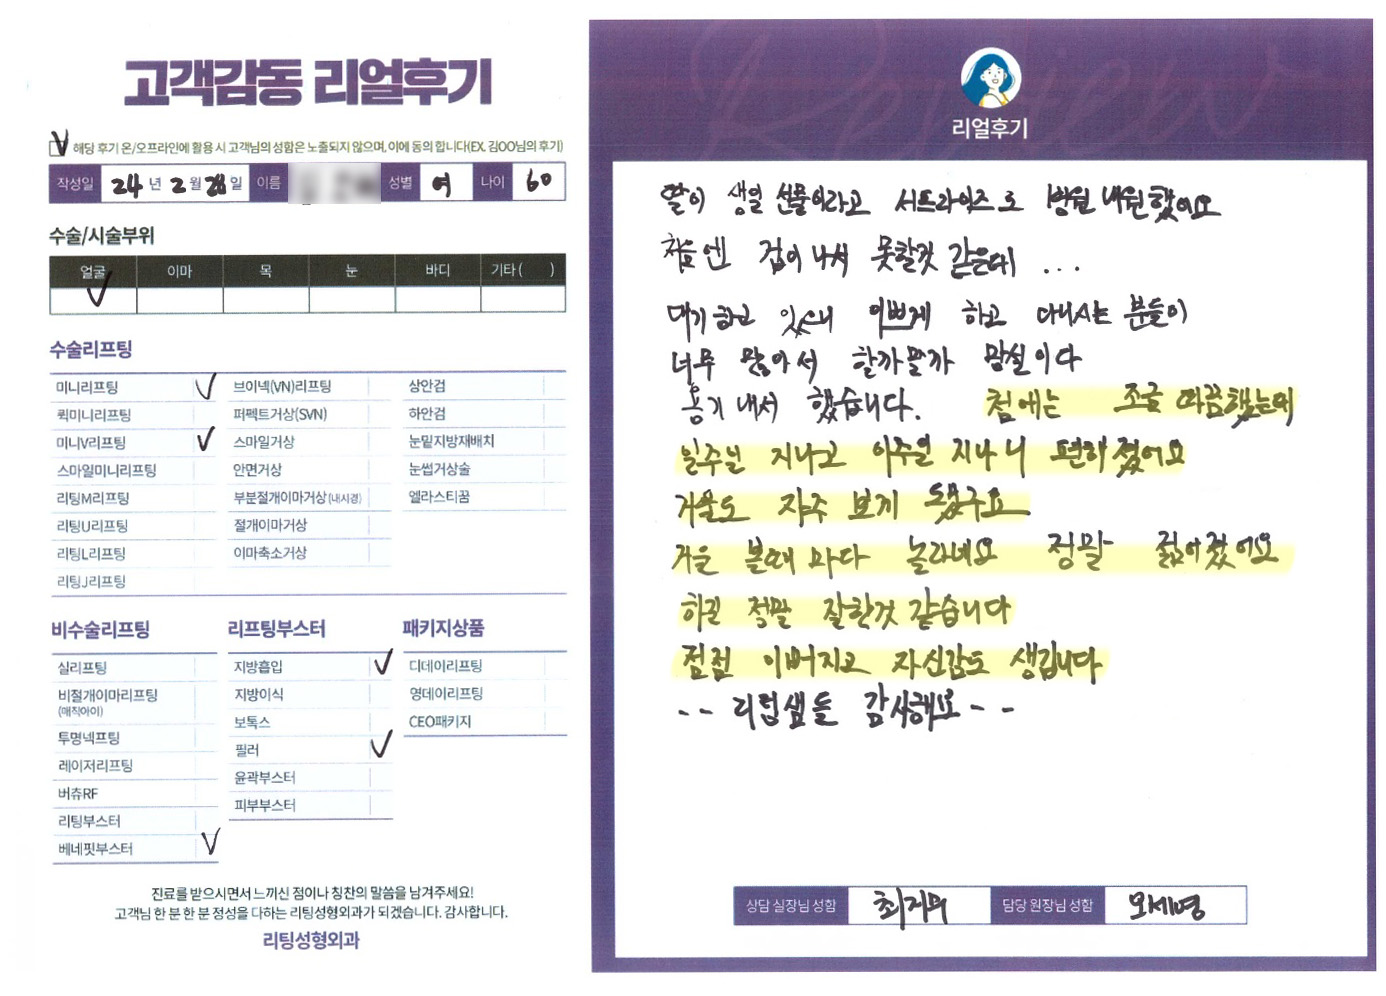 고객감동 리얼후기
해당 후기 온/오프라인에 활용 시 고객님의 성함은 노출되지 않으며, 이에 동의 합니다(EX. 김OO님의 후기)
작성일 24 년 2 월 28 일 이름 성별 여 나이 60
수술/시술부위
얼굴 이마 목 눈 바디 기타 ( )
수술리프팅
미니리프팅 브이넥(VN)리프팅 상안검
퀵미니리프팅 퍼펙트거상(SVN) 하안검
미니V리프팅 스마일거상 눈밑지방재배치
스마일미니리프팅 안면거상 눈썹거상술
리팅M리프팅 부분절개이마거상(내시경) 엘라스티꿈
리팅U리프팅 절개이마거상
리팅L리프팅 이마축소거상
리팅J리프팅
비수술리프팅
실리프팅
비절개이마리프팅
(매직아이)
투명넥리프팅
레이저리프팅
버츄RF
리팅부스터
베네핏부스터
리프팅부스터
지방흡입
지방이식
보톡스
필러
윤곽부스터
피부부스터
패키지상품
디데이리프팅
영데이리프팅
CEO패키지
진료를 받으시면서 느끼신 점이나 칭찬의 말씀을 남겨주세요!
고객님 한 분 한 분 정성을 다하는 리팅성형외과가 되겠습니다. 감사합니다.
리팅성형외과
Review
리얼후기
딸이 생일 선물이라고 서프라이즈로 병원 내원했어요
처음엔 겁이 나서 못할것 같은데 ...
대기 하고 있으니 이쁘게 하고 다니시는 분들이
너무 많아서 할까말까 망설이다
용기 내서 했습니다. 첨에는 조금 따끔했는데
일주일 지나고 이주일 지나니 편해졌어요
거울도 자주 보게 됐구요
거울 볼때 마다 놀라네요 정말 젊어졌어요
하길 정말 잘한것 같습니다
점점 이뻐지고 자신감도 생깁니다
-- 리팅샘들 감사해요 --
상담 실장님 성함 최지우 담당 원장님 성함 오세영